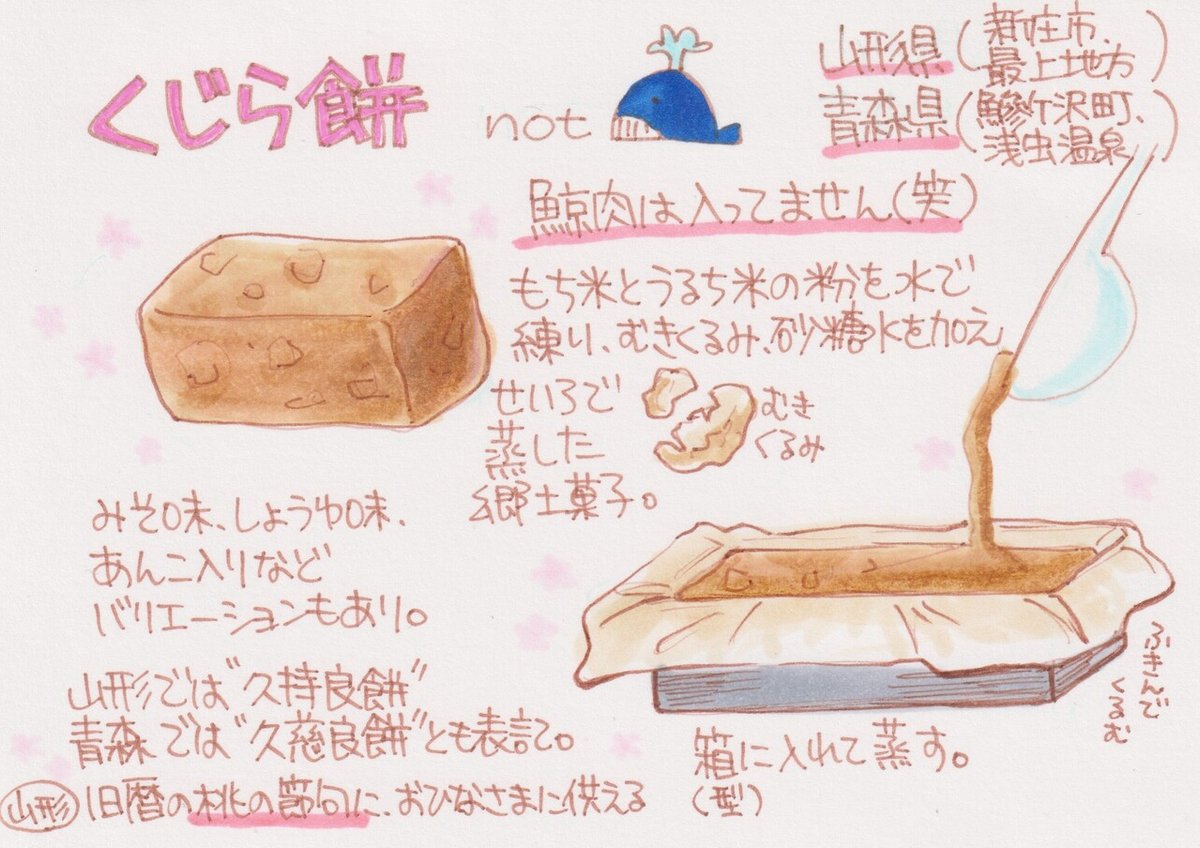 くじら餅 not
山形県(新庄市、最上地方)
青森県(鰺ヶ沢町、浅虫温泉)
鯨肉は入ってません(笑)
もち米とうるち米の粉を水で
練り、むきくるみ、砂糖水を加え
せいろで
蒸した
郷土菓子。
むき
くるみ
みそ味、しょうゆ味、
あんこ入りなど
バリエーションもあり。
山形では"久持良餅"
青森では"久慈良餅"とも表記。
山形 旧暦の桃の節句に、おひなさまに供える
ふきんで
くるむ
箱に入れて蒸す。
(型)